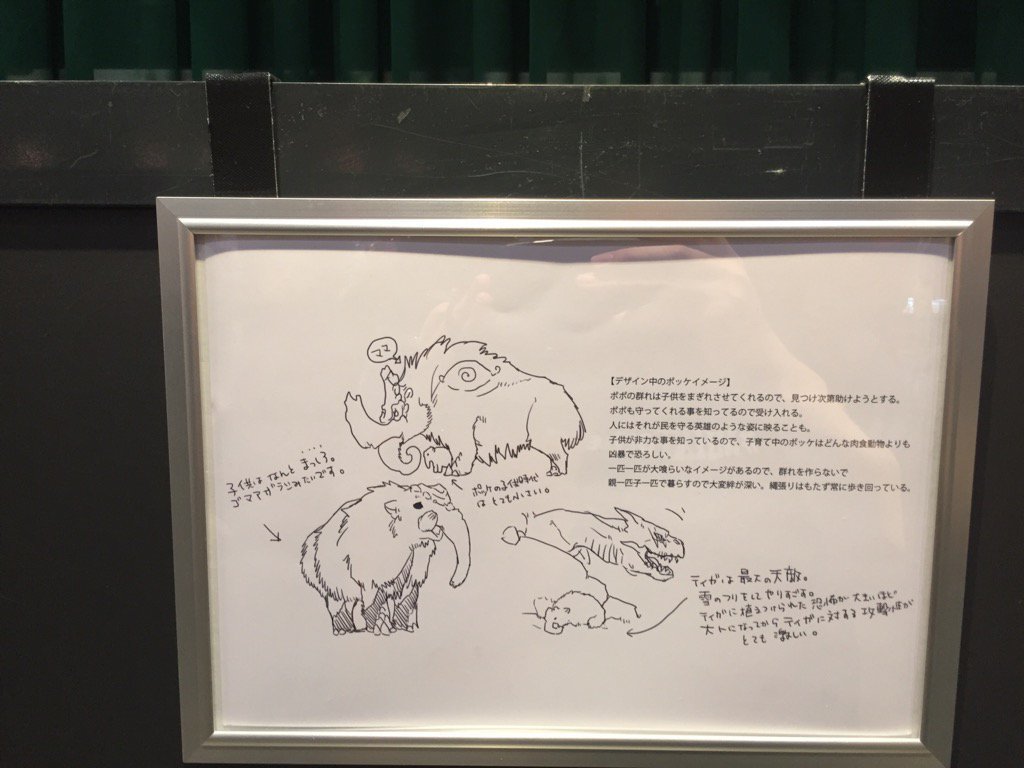 ママ
【デザイン中のポッケイメージ】
ポポの群れは子供をまぎれさせてくれるので、見つけ次第助けようとする。
ポポも守ってくれる事を知ってるので受け入れる。
人にはそれが民を守る英雄のような姿に映ることも。
子供が非力な事を知っているので、子育て中のポッケはどんな肉食動物よりも
凶暴で恐ろしい。
一匹一匹が大喰らいなイメージがあるので、群れを作らないで
親一匹子一匹で暮らすので大変絆が深い。縄張りはもたず常に歩き回っている。
子供はなんとまっしろ。
ゴマアザラシみたいです。
ポッケの子供時代
はとても小さい。
ティガは最大の天敵。
雪のフリをしてやりすごす。
ティガに植えつけられた恐怖が大きいほど
大人になってからティガに対する攻撃性が
とても激しい。